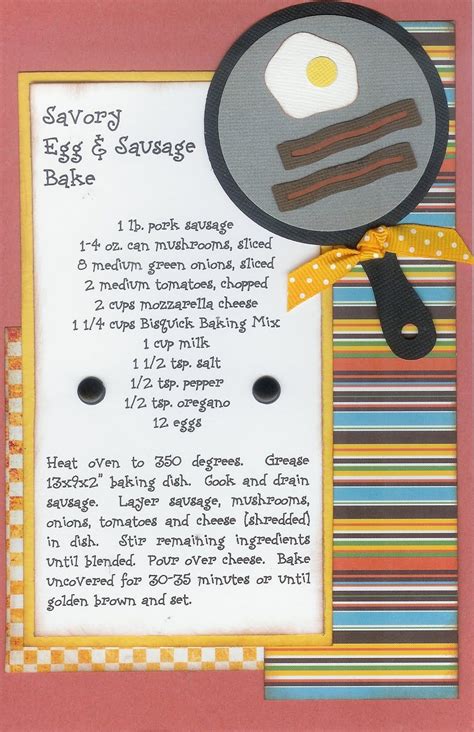 Savory
Egg & Sausage
Bake
1 lb. pork sausage
1-4 oz. can mushrooms, sliced
8 medium green onions, sliced
2 medium tomatoes, chopped
2 cups mozzarella cheese
1 1/4 cups Bisquick Baking Mix
1 cup milk
1 1/2 tsp. salt
1/2 tsp. pepper
1/2 tsp. oregano
12 eggs
Heat oven to 350 degrees. Grease
13x9x2" baking dish. Cook and drain
sausage. Layer sausage, mushrooms,
onions, tomatoes and cheese (shredded)
in dish. Stir remaining ingredients
until blended. Pour over cheese. Bake
uncovered for 30-35 minutes or until
golden brown and set.